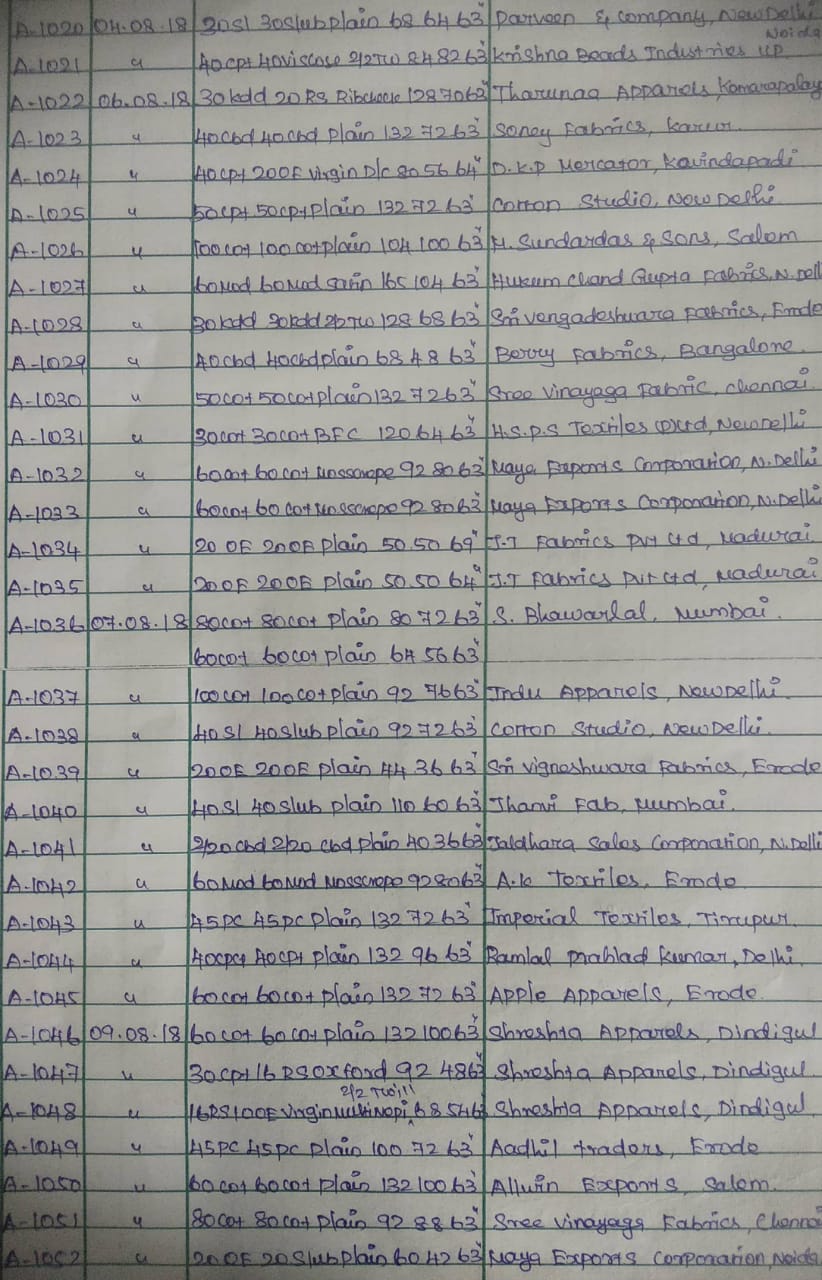 A-1020 04.08.18 20Sl 30Slub plain 68 64 63" Parveen & Company, New Delhi
A-1021 " 40cpt 40viscose 2/2TW 84 82 63" Krishna Beads Industries UP Noida
A-1022 06.08.18 30kdd 20RS Ribcheck 128 70 63" Tharunaa Apparels, Komarapalay
A-1023 " 40cbd 40cbd plain 132 72 63" Soney Fabrics, Karur.
A-1024 " 40cpt 20OE Virgin D/c 80 56 64" D.K.P Mercator, Kavindapadi
A-1025 " 50cpt 50cpt plain 132 72 63" Cotton Studio, New Delhi
A-1026 " 100cot 100cot plain 104 100 63" M. Sundardas & Sons, Salem
A-1027 " 60Mod 60Mod Satin 165 104 63" Hukum Chand Gupta Fabrics, N. Delh
A-1028 " 30kdd 30kdd 2/2TW 128 68 63" Sri Vengadeshwara Fabrics, Erode
A-1029 " 40cbd 40cbd plain 68 48 63" Berry Fabrics, Bangalore.
A-1030 " 50cot 50cot plain 132 72 63" Sree Vinayaga Fabric, Chennai.
A-1031 " 30cot 30cot BFC 120 64 63" H.S.P.S Textiles (P)Ltd, New Delhi
A-1032 " 60cot 60cot Mosscrepe 92 80 63" Maya Exports Corporation, N. Delhi
A-1033 " 60cot 60cot Mosscrepe 92 80 63" Maya Exports Corporation, N. Delhi
A-1034 " 20 OE 20OE plain 50 50 69" J.J Fabrics Pvt Ltd, Madurai
A-1035 " 20OE 20OE plain 50 50 64" J.J Fabrics Pvt Ltd, Madurai
A-1036 07.08.18 80cot 80cot plain 80 72 63" S. Bhawarlal, Mumbai.
60cot 60cot plain 64 56 63"
A-1037 " 100cot 100cot plain 92 76 63" Indu Apparels, New Delhi.
A-1038 " 40Sl 40Slub plain 92 72 63" Cotton Studio, New Delhi.
A-1039 " 20OE 20OE plain 44 36 63" Sri Vigneshwara Fabrics, Erode
A-1040 " 40Sl 40Slub plain 110 60 63" Jhanvi Fab, Mumbai.
A-1041 " 2/20 cbd 2/20 cbd plain 40 36 63" Jaldhara Sales Corporation, N. Delhi
A-1042 " 60Mod 60Mod Mosscrepe 92 80 63" A.K Textiles, Erode
A-1043 " 45PC 45PC plain 132 72 63" Imperial Textiles, Tirupur.
A-1044 " 40cpt 40cpt plain 132 96 63" Ramlal Prahlad Kumar, Delhi.
A-1045 " 60cot 60cot plain 132 72 63" Apple Apparels, Erode.
A-1046 09.08.18 60cot 60cot plain 132 100 63" Shreshta Apparels, Dindigul
A-1047 " 30cpt 16 RS Oxford 92 48 63" Shreshta Apparels, Dindigul
2/2 Twill
A-1048 " 16RS 10OE Virgin Multi Nopi 68 54 63" Shreshta Apparels, Dindigul
A-1049 " 45PC 45PC plain 100 72 63" Aadhil traders, Erode
A-1050 " 60cot 60cot plain 132 100 63" Allwin Exports, Salem.
A-1051 " 80cot 80cot plain 92 88 63" Sree Vinayaga Fabrics, Chennai
A-1052 " 20OE 20Slub plain 60 42 63" Maya Exports Corporation, Noida